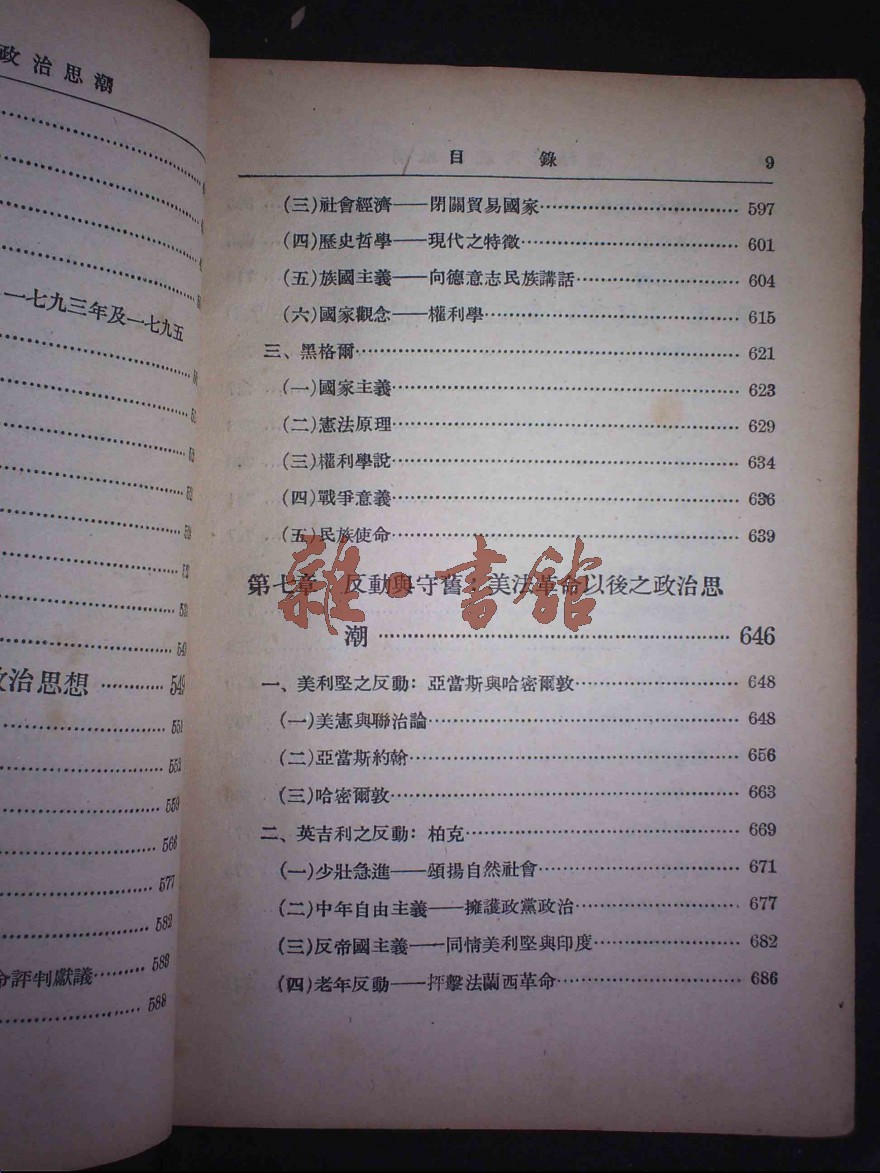 政治思潮
一七九三年及一七九五
政治思想 549
551
553
559
566
577
582
評判獻議 588
588
目 錄 9
(三)社會經濟——閉關貿易國家 597
(四)歷史哲學——現代之特徵 601
(五)族國主義——向德意志民族講話 604
(六)國家觀念——權利學 615
三、黑格爾 621
(一)國家主義 623
(二)憲法原理 629
(三)權利學說 634
(四)戰爭意義 636
(五)民族使命 639
第七章 反動與守舊：美法革命以後之政治思
潮 646
一、美利堅之反動：亞當斯與哈密爾敦 648
(一)美憲與聯治論 648
(二)亞當斯約翰 656
(三)哈密爾敦 663
二、英吉利之反動：柏克 669
(一)少壯急進——頌揚自然社會 671
(二)中年自由主義——擁護政黨政治 677
(三)反帝國主義——同情美利堅與印度 682
(四)老年反動——抨擊法蘭西革命 686
雜·書館